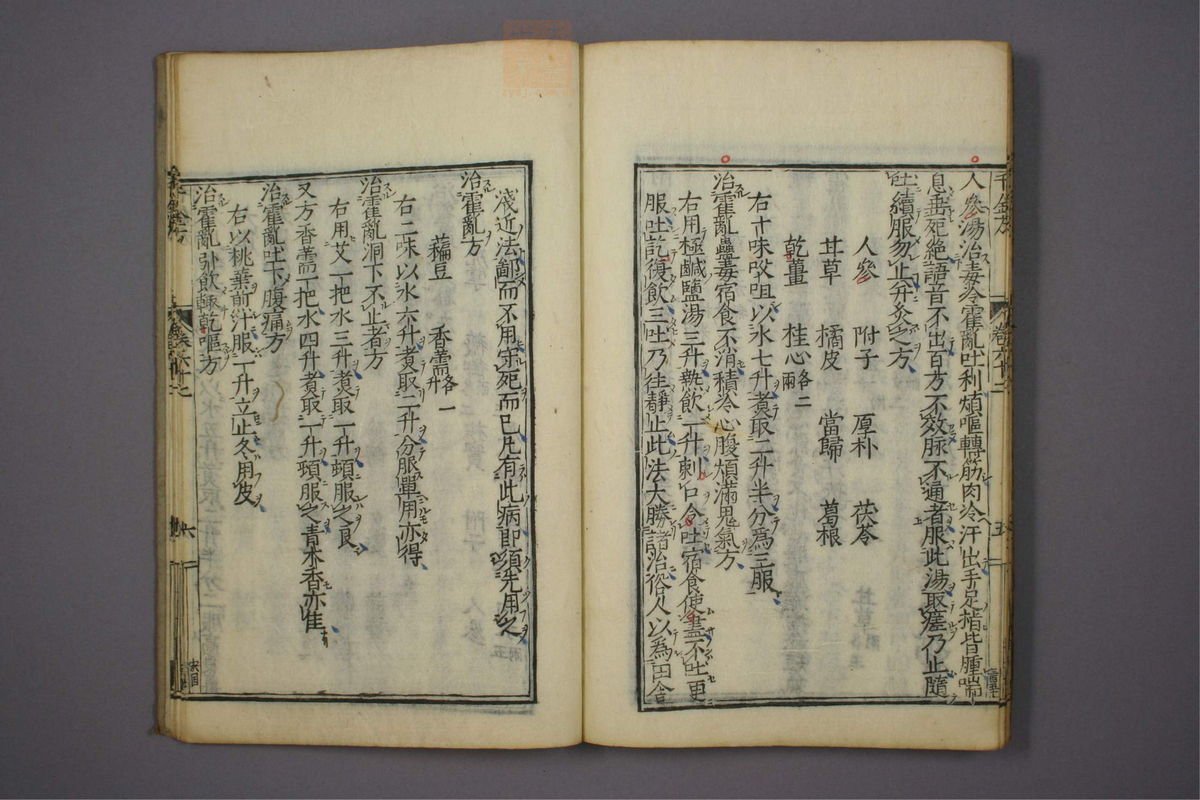 人參湯治毒冷霍亂吐利煩嘔轉筋肉冷汗出手足指皆腫喘
息垂死絕語音不出百方不效脉不通者服此湯取瘥乃止隨
吐續服勿止并灸之方
人參 附子 厚朴 茯苓
甘草 橘皮 當歸 葛根
乾薑 桂心各二兩
右十味㕮咀以水七升煮取二升半分爲三服
治霍亂蠱毒宿食不消積冷心腹煩滿鬼氣方
右用極鹹鹽湯三升熱飲一升刺口令吐宿食使盡不吐更
服吐訖復飲三吐乃住靜止此法大勝諸治俗人以爲田舍
淺近法鄙而不用守死而已凡有此病即須先用之
治霍亂方
藊豆 香薷各一升
右二味以水六升煮取二升分服單用亦得
治霍亂洞下不止者方
右用艾一把水三升煮取一升頓服之良
又方香薷一把水四升煮取一升頓服之青木香亦佳
治霍亂吐下腹痛方
右以桃葉煎汁服一升立止冬用皮
治霍亂引飲飲輒乾嘔方